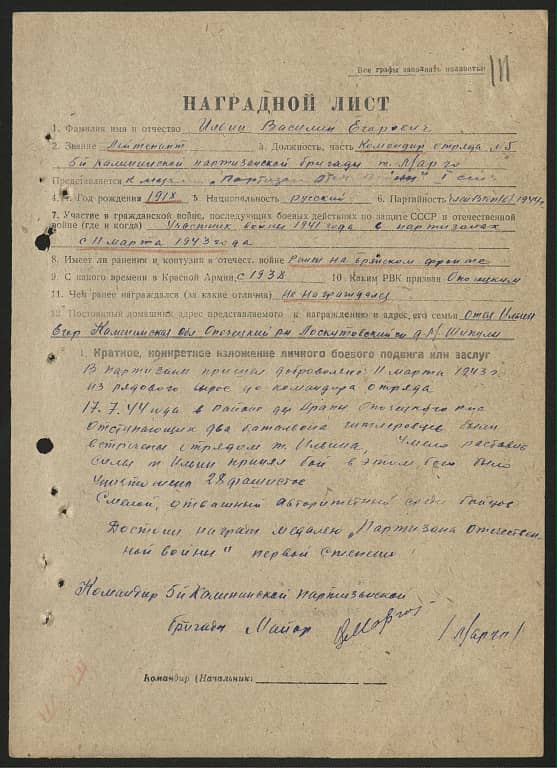 Все графы заполнять полностью
111
НАГРАДНОЙ ЛИСТ
1. Фамилия имя и отчество Ильин Василий Егорович
2. Звание Лейтенант 3. Должность, часть Командир отряда №5
5й Калининской партизанской бригады т. Марго
Представляется к мед. „Партизан Отеч. войны" I степ
4. Год рождения 1918 5. Национальность русский 6. Партийность 1944г.
7. Участие в гражданской войне, последующих боевых действиях по защите СССР и отечественной
войне (где и когда) Участник войны 1941 года в партизанах
с 11 марта 1943 года
8. Имеет ли ранения и контузии в отечест. войне Ранен на брянском фронте
9. С какого времени в Красной Армии с 1938 10. Каким РВК призван Опочецким
11. Чем ранее награждался (за какие отличия) Не награждался
12. Постоянный домашний адрес представляемого к награждению и адрес его семьи отец Ильин
Егор Калининская обл Опочецкий рн Лоскутовский с/с д. Шипули
1. Краткое, конкретное изложение личного боевого подвига или заслуг
В партизаны пришел добровольно 11 марта 1943 г.
из рядового вырос до командира отряда
17.7.44 года в районе д. Опочецкого р-на
Отступающих два батальона гитлеровцев были
встречены отрядом т. Ильина. Умело расставив
силы т Ильин принял бой в этом бою было
уничтожено 28 фашистов
Смелой, отважный авторитетный среди бойцов
Достоин награды медалею „Партизана Отечествен
ной войны" первой степени!
Командир 5й Калининской партизанской
бригады Майор Марго /Марго/
Командир (Начальник)